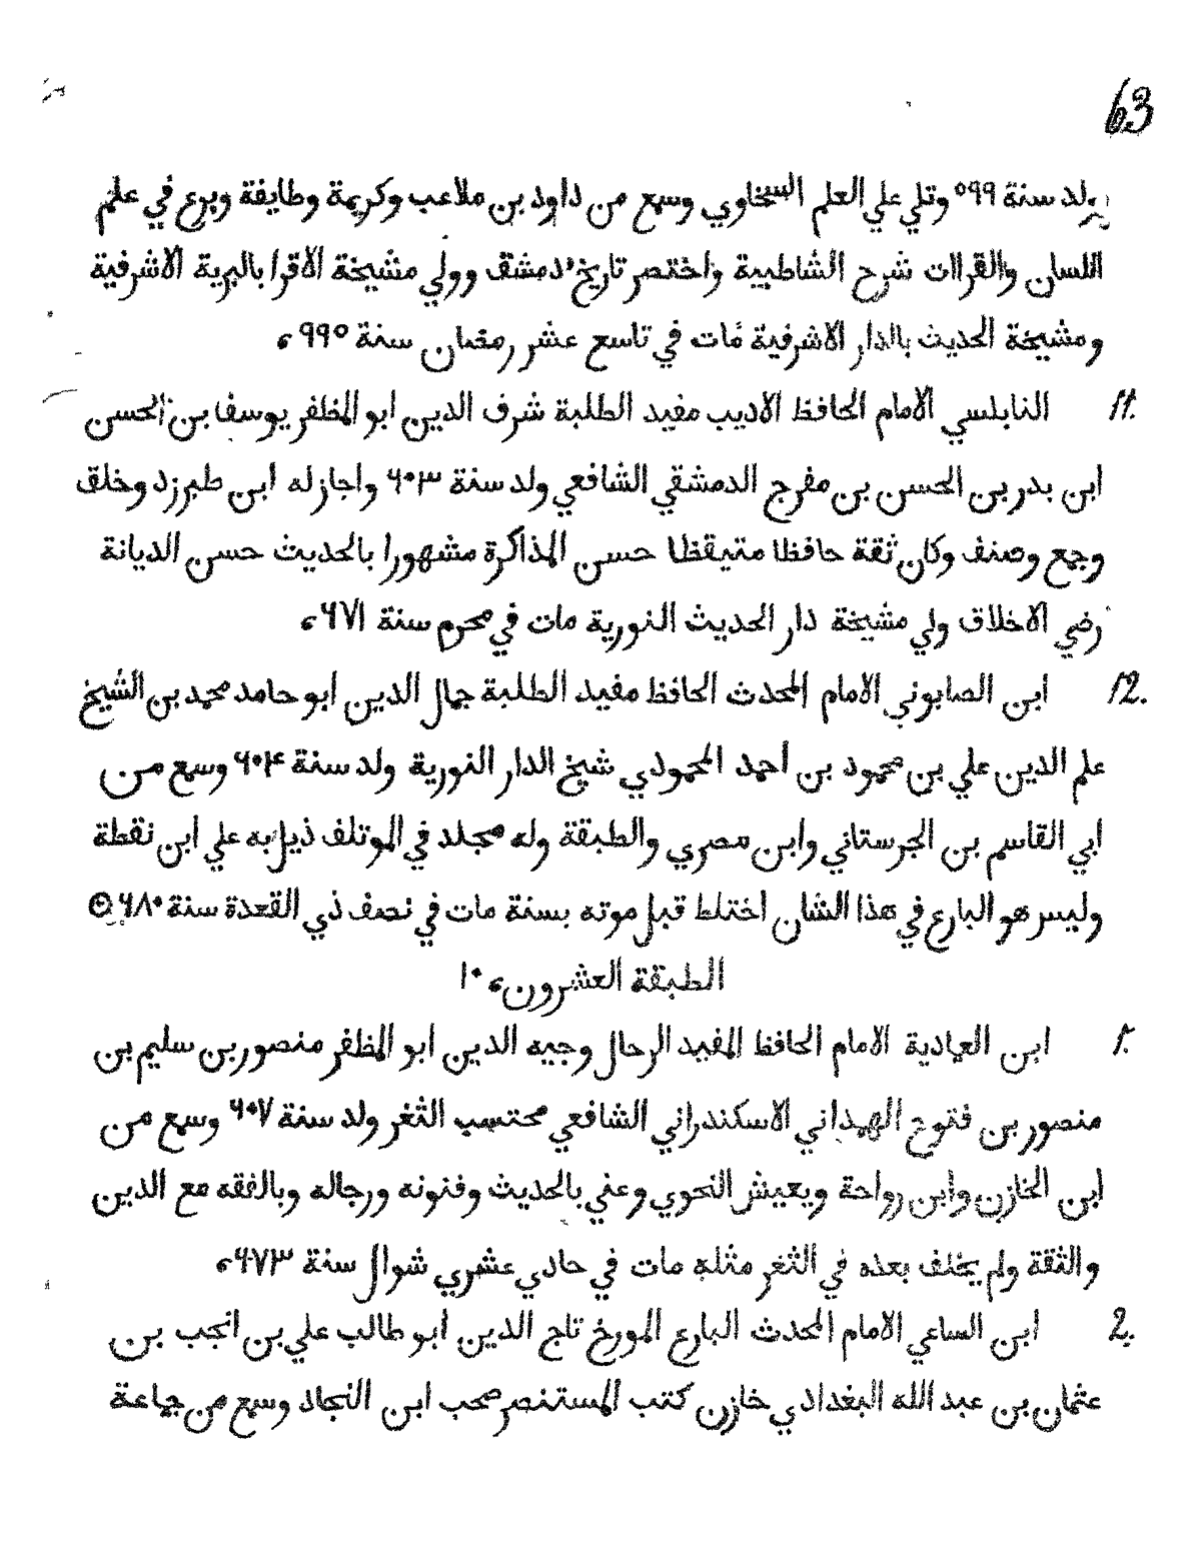 63
ولد سنة ٥٩٩ وتلي علي العلم السخاوي وسمع من داود بن ملاعب وكريمة وطايفة وبرع في علم
اللسان والقراات شرح الشاطبية واختصر تاريخ دمشق وولي مشيخة الاقرا بالبرية الاشرفية
ومشيخة الحديث بالدار الاشرفية مات في تاسع عشر رمضان سنة ٩٩٥
11. النابلسي الامام الحافظ الاديب مفيد الطلبة شرف الدين ابو المظفر يوسف بن الحسن
ابن بدر بن الحسن بن مفرج الدمشقي الشافعي ولد سنة ٦٠٣ واجاز له ابن طبرزد وخلق
وجمع وصنف وكان ثقة حافظا متيقظا حسن المذاكرة مشهورا بالحديث حسن الديانة
رضي الاخلاق ولي مشيخة دار الحديث النورية مات في محرم سنة ٦٧١
12. ابن الصابوني الامام المحدث الحافظ مفيد الطلبة جمال الدين ابو حامد محمد بن الشيخ
علم الدين علي بن محمود بن احمد المحمودي شيخ الدار النورية ولد سنة ٦٠٤ وسمع من
ابي القاسم بن الجرستاني وابن مصري والطبقة وله مجلد في الموتلف ذيل به علي ابن نقطة
وليس هو البارع في هذا الشان اختلط قبل موته بسنة مات في نصف ذي القعدة سنة ٦٨٠
الطبقة العشرون ١٠
1. ابن العمادية الامام الحافظ المفيد الرحال وجيه الدين ابو المظفر منصور بن سليم بن
منصور بن فتوح الهمداني الاسكندراني الشافعي محتسب الثغر ولد سنة ٦٠٧ وسمع من
ابن الخازن وابن رواحة ويعيش النحوي وعني بالحديث وفنونه ورجاله وبالفقه مع الدين
والثقة ولم يخلف بعده في الثغر مثله مات في حادي عشري شوال سنة ٦٧٣
2. ابن الساعي الامام المحدث البارع المورخ تاج الدين ابو طالب علي بن انجب بن
عثمان بن عبد الله البغدادي خازن كتب المستنصر صحب ابن النجاد وسمع من جماعة